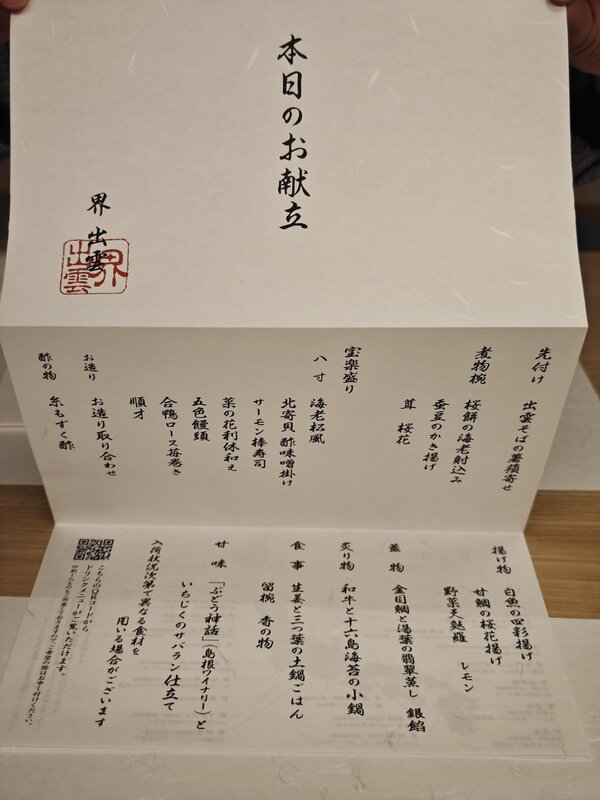 本日のお献立
界 出雲
界出雲
先付け 出雲そばの薯蕷寄せ
煮物椀 桜餅の海老射込み
蚕豆のかき揚げ
茸 桜花
宝楽盛り
八寸 海老松風
北寄貝 酢味噌掛け
サーモン棒寿司
菜の花利休和え
五色饅頭
合鴨ロース苺巻き
順才
お造り お造り取り合わせ
酢の物 糸もずく酢
揚げ物 白魚の四彩揚げ
甘鯛の桜花揚げ
野菜天麩羅 レモン
蓋物 金目鯛と湯葉の翡翠蒸し 銀餡
炙り物 和牛と十六島海苔の小鍋
食事 生姜と三つ葉の土鍋ごはん
留椀 香の物
甘味 「ぶどう神話」（島根ワイナリー）と
いちじくのサバラン仕立て
入荷状況次第で異なる食材を
用いる場合がございます
こちらのQRコードから
ドリンクメニューがご覧いただけます。
印刷したものもご用意しておりますのでご希望の際はお申し付けください。